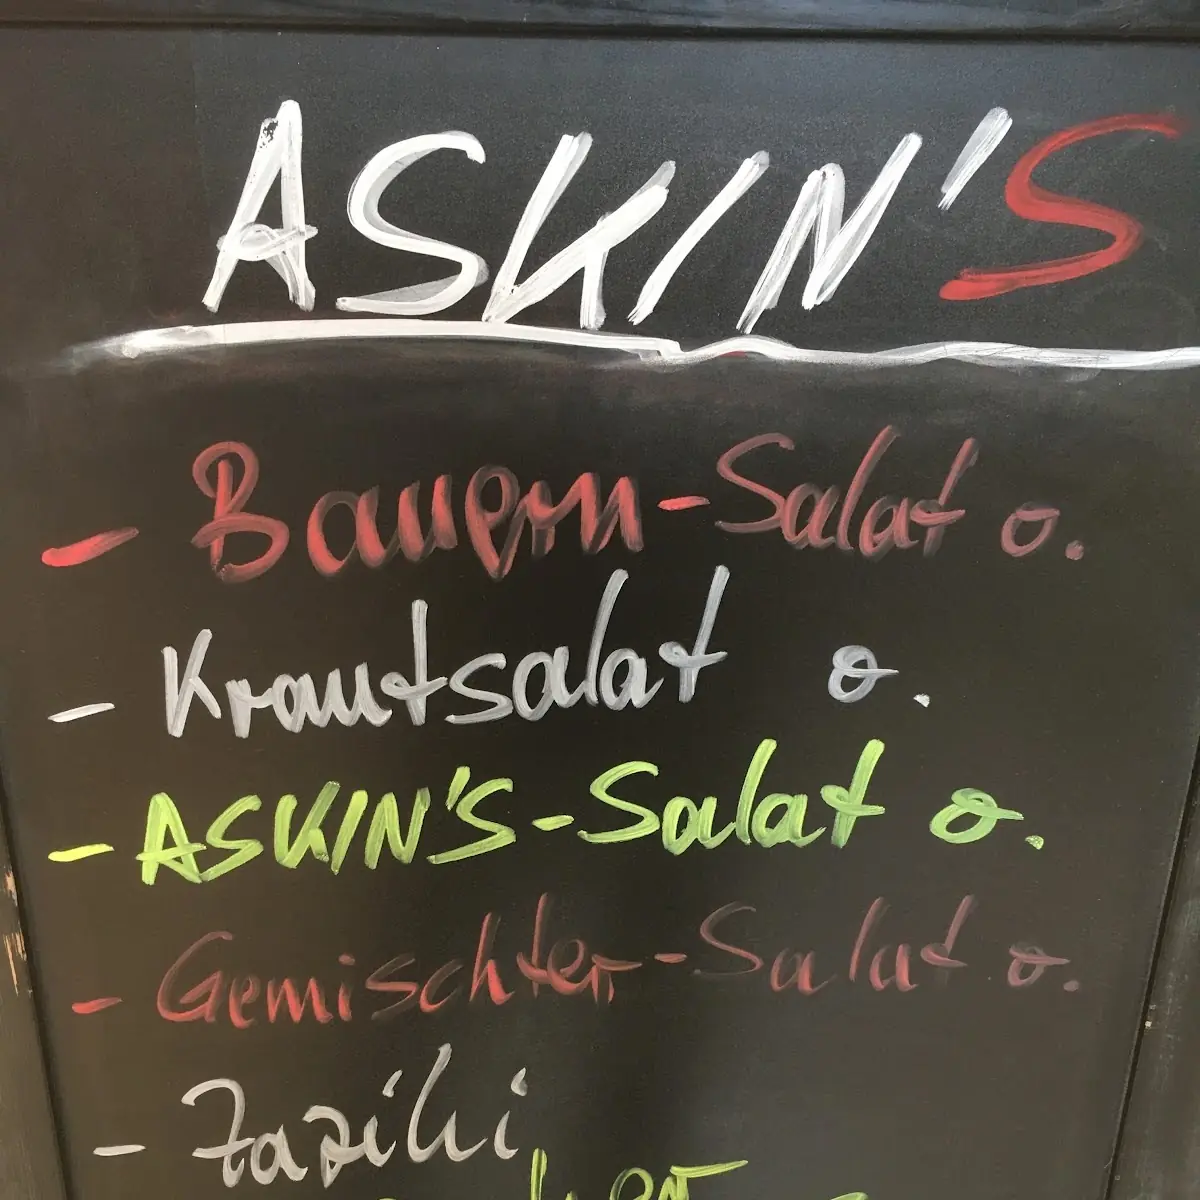 ASKIN'S
- Bauern-Salat o.
- Krautsalat o.
- ASKIN'S-Salat o.
- Gemischter-Salat o.
- Zaziki